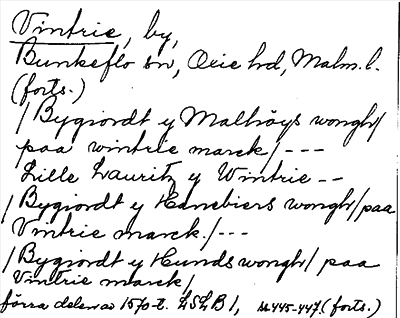 Vintrie, by,
Bunkeflo sn, Oxie hd, Malm. l.
(forts.)
/Bygiordt y Malhöys wongh/
paa vintrie marck/ - - -
Lille Lauritz y Wintrie - -
/Bygiordt y Hanebiers wongh/paa
Vintrie marck./- - -
/Bygiordt y Hunds wongh/ paa
Vintrie marck/
förra delen av 1570-t. LSLB 1, ss. 445-447. (forts.)